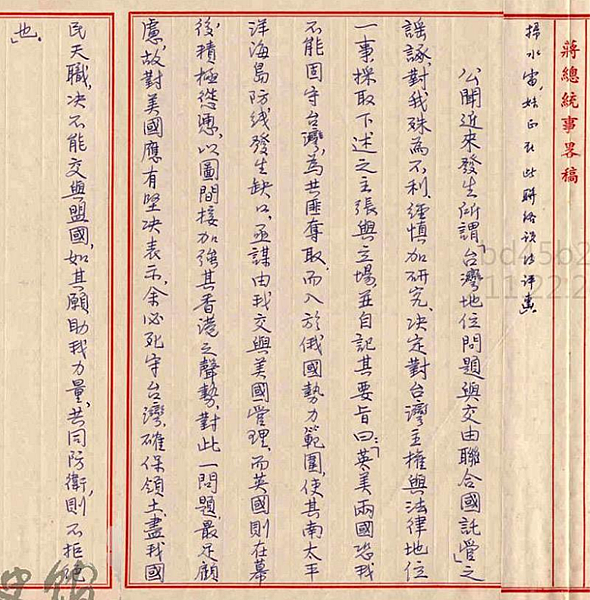 蔣總統事畧稿
掃水雷，
公聞近來發生所謂「台灣地位問題與交由聯合國託管」之
謠諑，對我殊為不利，經慎加研究，决定對台灣主權與法律地位
一事採取下述之主張與立場，並自記其要旨曰：「英美兩國恐我
不能固守台灣，為共匪奪取，而入於俄國勢力範圍，使其南太平
洋海島防线發生缺口，亟謀由我交與美國管理，而英國則在幕
後積極慫恿，以圖間接加強其香港之聲勢，對此一問題，最足顧
慮，故對美國應有堅决表示，余必死守台灣，確保領土，盡我國
民天職，决不能交與盟國，如其願助我力量，共同防衛，則不拒絕
也。」
史館